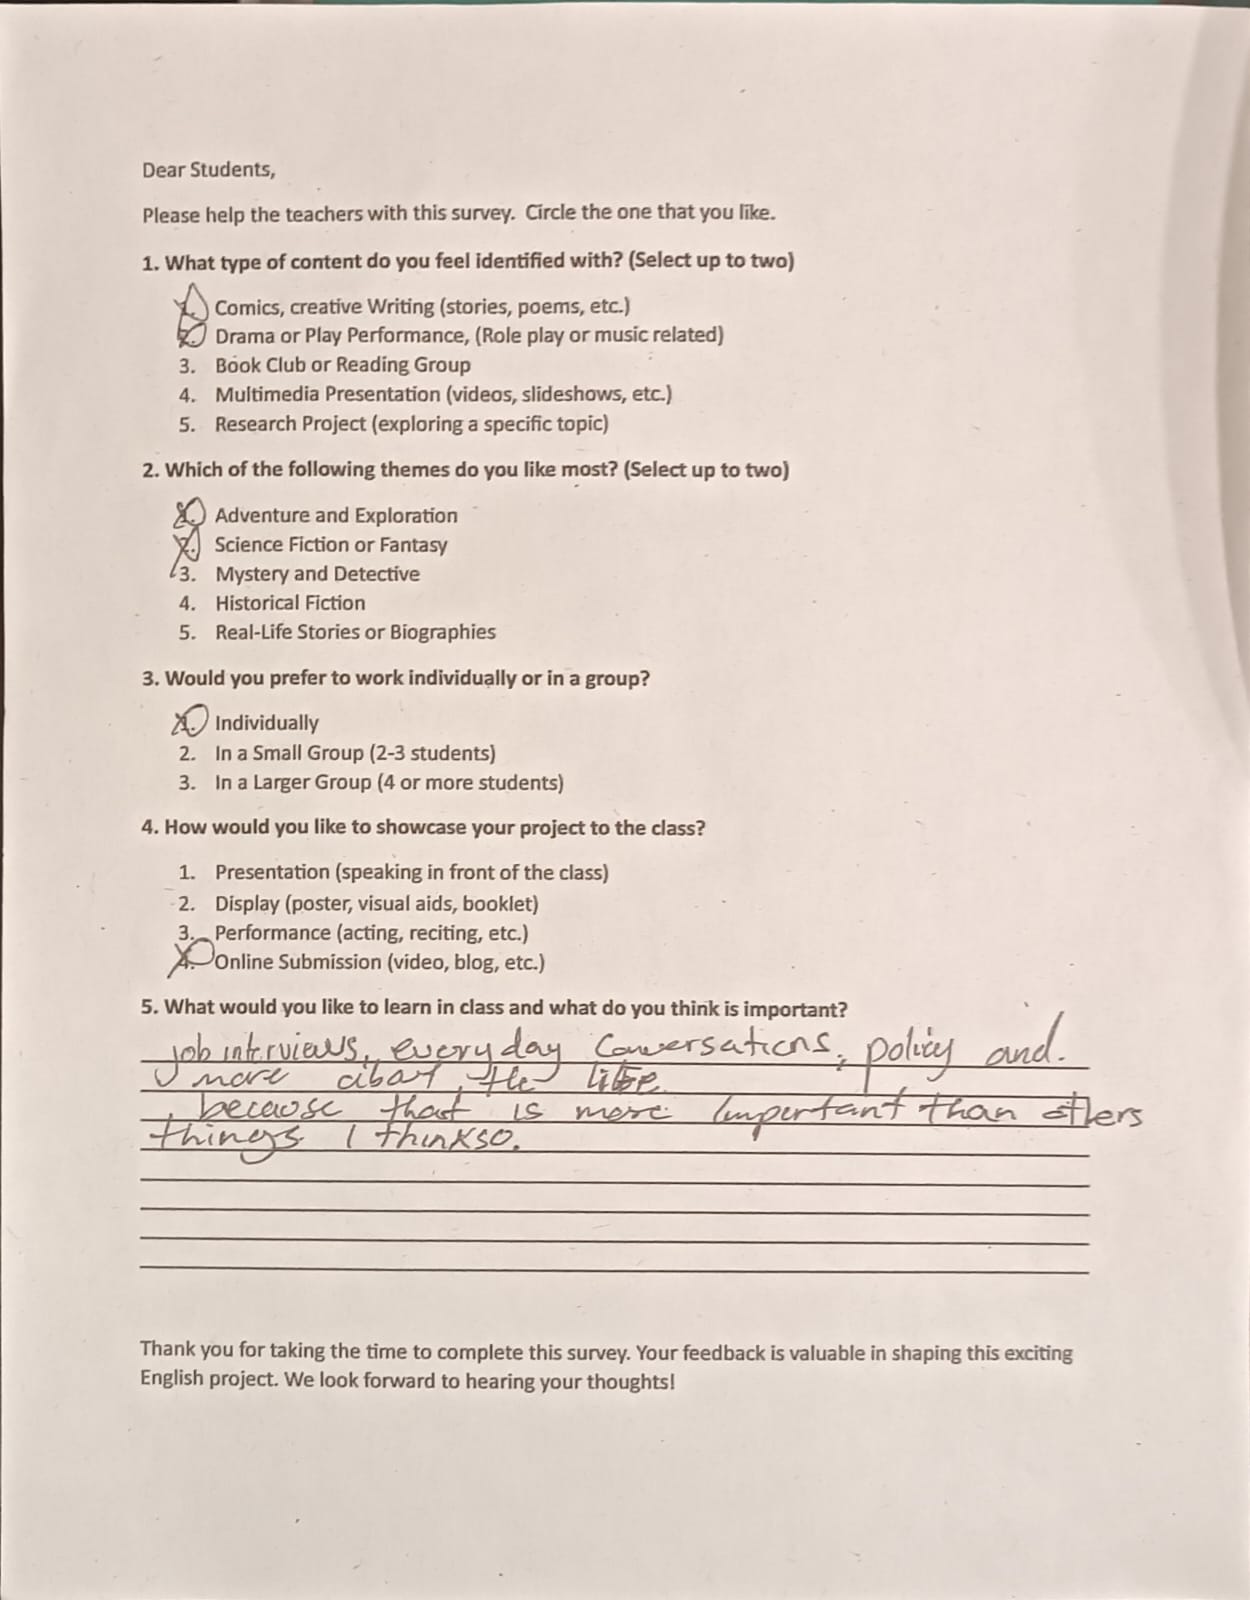 Dear Students,
Please help the teachers with this survey. Circle the one that you like.
1. What type of content do you feel identified with? (Select up to two)
1. Comics, creative Writing (stories, poems, etc.)
2. Drama or Play Performance, (Role play or music related)
3. Book Club or Reading Group
4. Multimedia Presentation (videos, slideshows, etc.)
5. Research Project (exploring a specific topic)
2. Which of the following themes do you like most? (Select up to two)
1. Adventure and Exploration
2. Science Fiction or Fantasy
3. Mystery and Detective
4. Historical Fiction
5. Real-Life Stories or Biographies
3. Would you prefer to work individually or in a group?
1. Individually
2. In a Small Group (2-3 students)
3. In a Larger Group (4 or more students)
4. How would you like to showcase your project to the class?
1. Presentation (speaking in front of the class)
2. Display (poster, visual aids, booklet)
3. Performance (acting, reciting, etc.)
4. Online Submission (video, blog, etc.)
5. What would you like to learn in class and what do you think is important?
job interviews, everyday conversations, policy and.
more about the life
, because that is more important than others
things I thinkso.
Thank you for taking the time to complete this survey. Your feedback is valuable in shaping this exciting
English project. We look forward to hearing your thoughts!